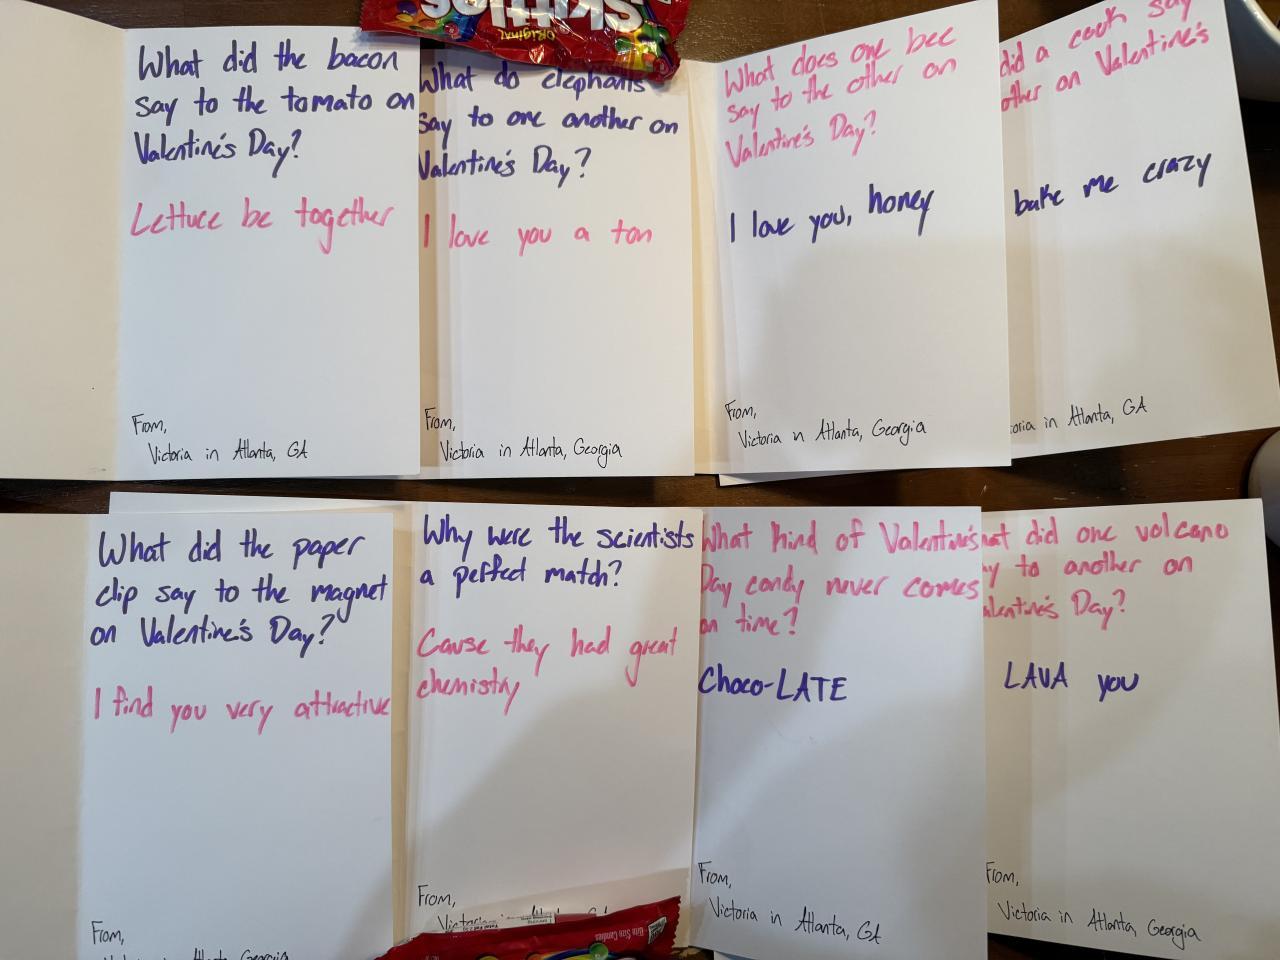 SKITTLES
ORIGINAL
What did the bacon
say to the tomato on
Valentine's Day?
Lettuce be together
From,
Victoria in Atlanta, GA
What do elephants
say to one another on
Valentine's Day?
I love you a ton
From,
Victoria in Atlanta, Georgia
What does one bee
say to the other on
Valentine's Day?
I love you, honey
From,
Victoria in Atlanta, Georgia
did a cook say
other on Valentine's
bake me crazy
toria in Atlanta, GA
What did the paper
clip say to the magnet
on Valentine's Day?
I find you very attractive
From,
Victoria in Atlanta Georgia
Why were the scientists
a perfect match?
Cause they had great
chemistry
From,
Victoria in Atlanta GA
What kind of Valentine's
Day candy never comes
on time?
Choco-LATE
From,
Victoria in Atlanta, GA
hat did one volcano
ay to another on
alentine's Day?
LAVA you
From,
Victoria in Atlanta, Georgia
Bite Size Candies